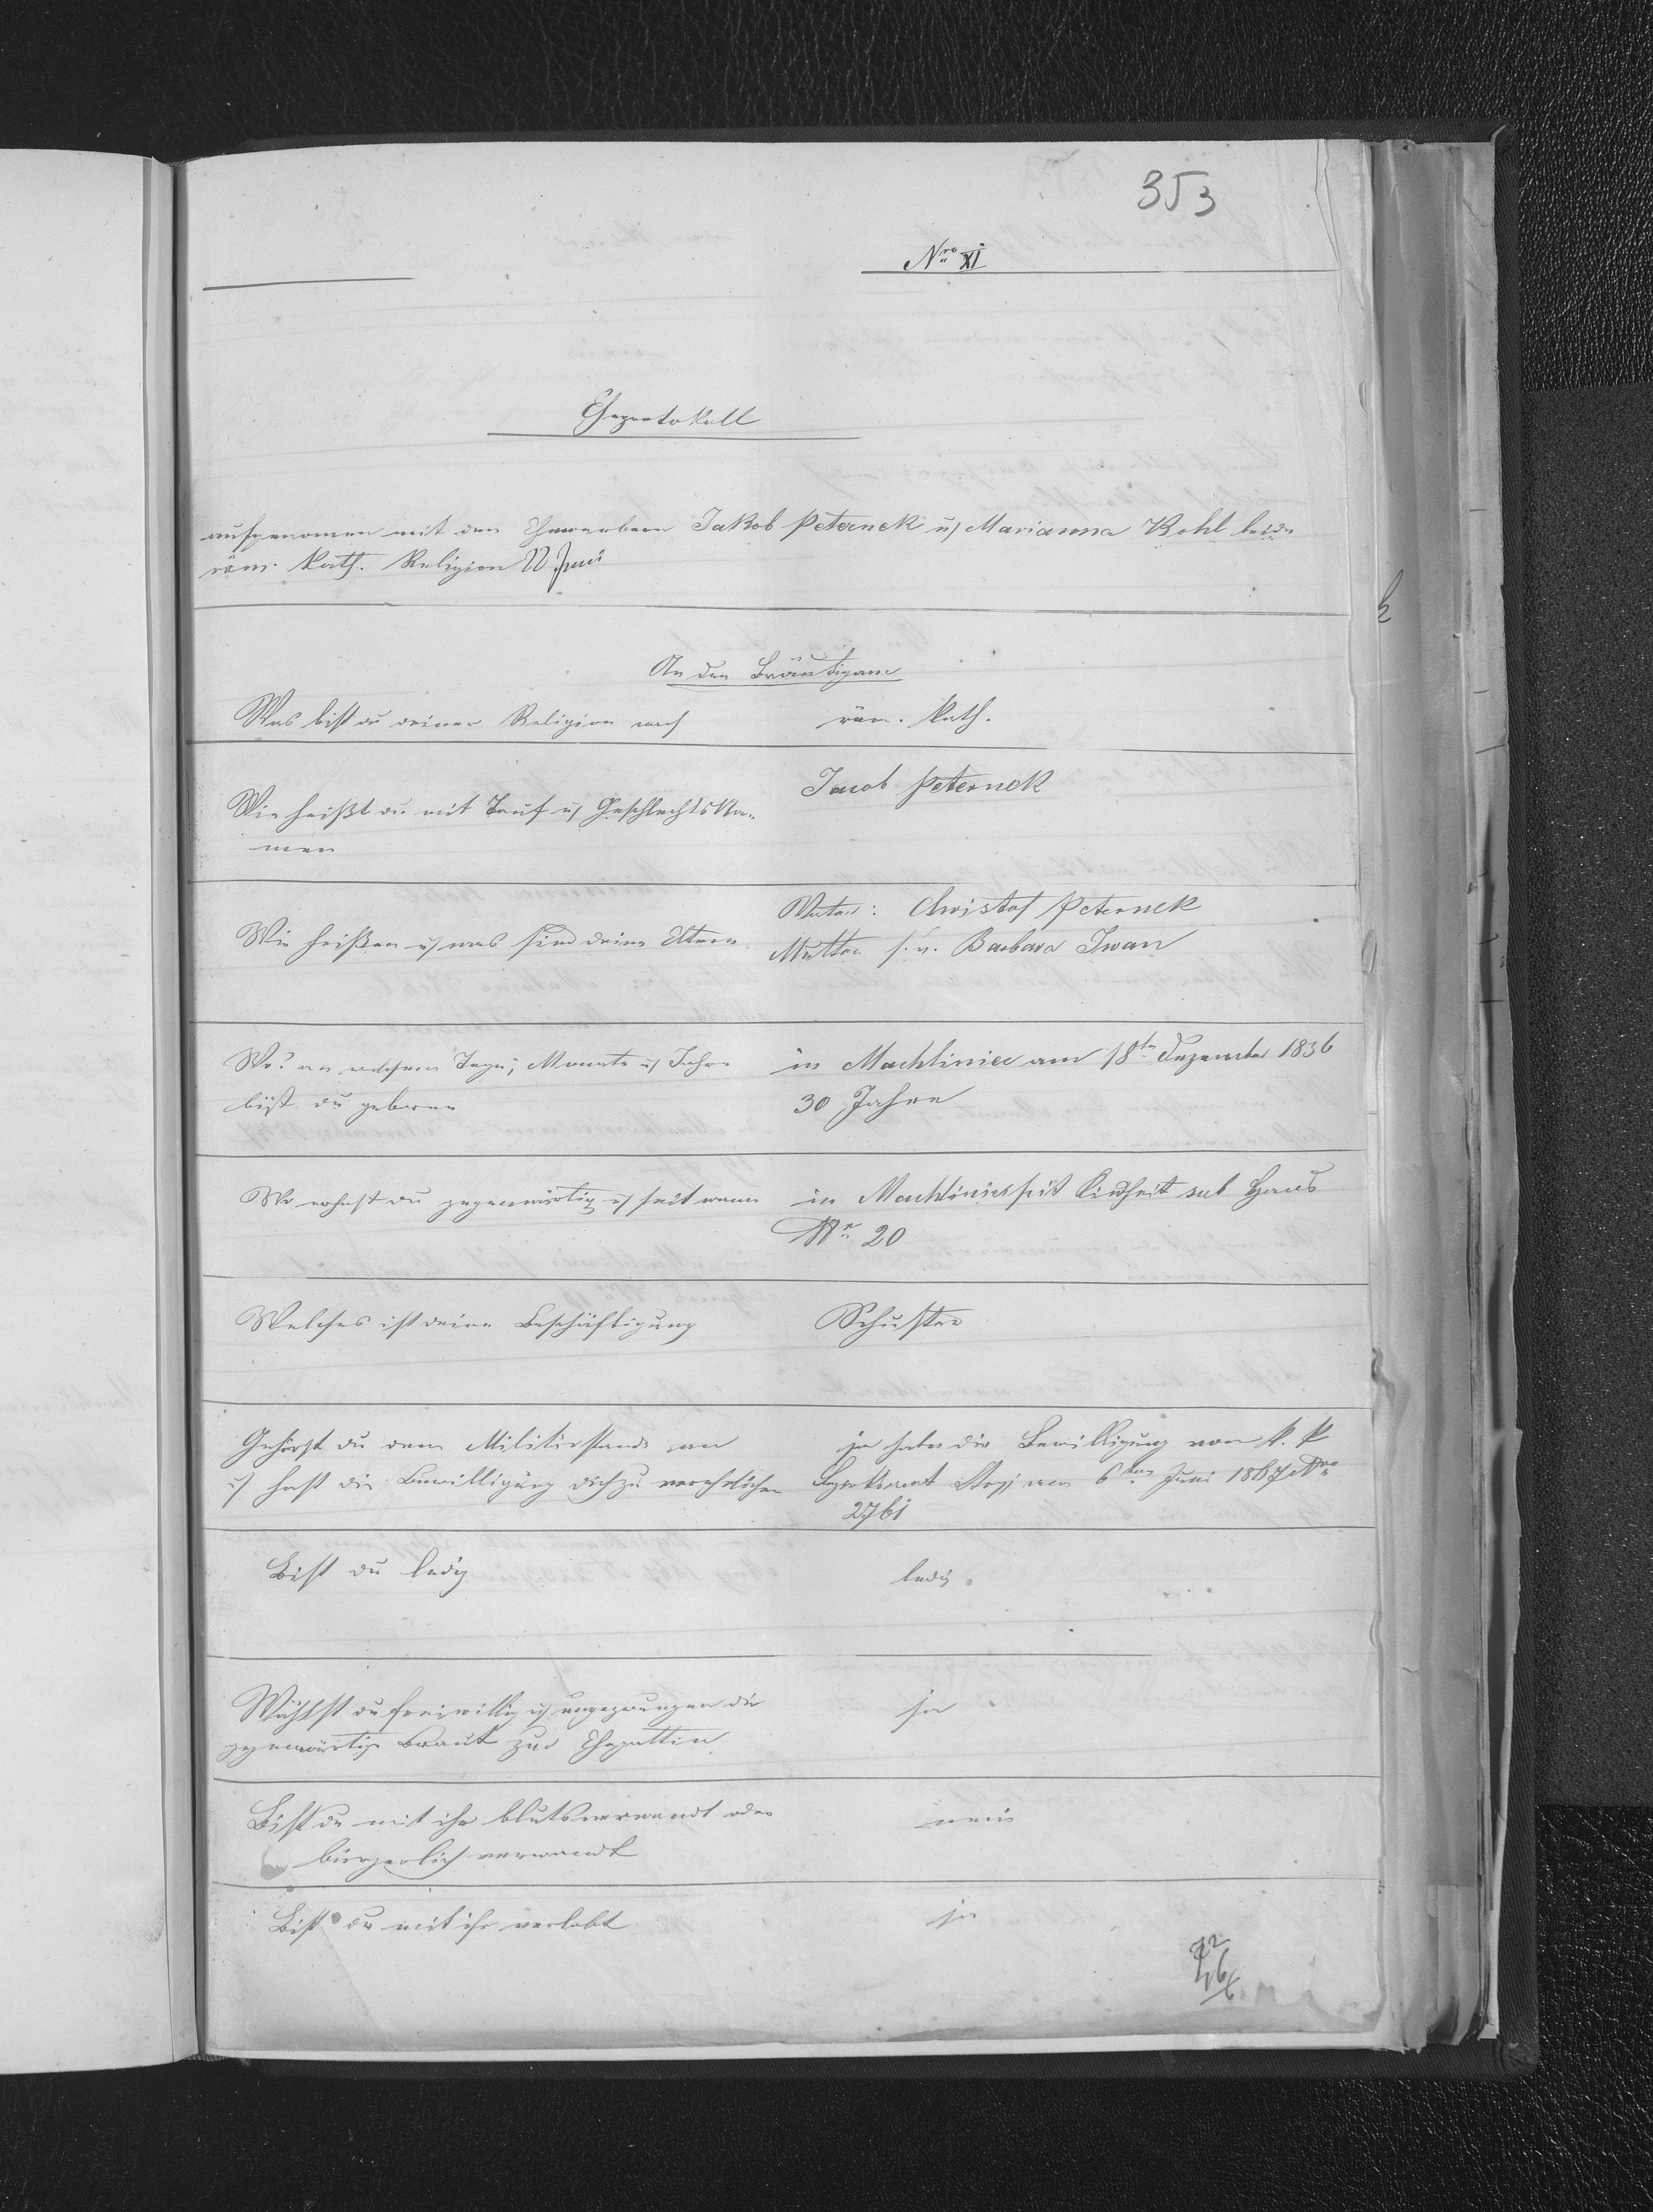 353
Nro XI
Eheprotokoll
aufgenommen mit den Ehewerbern Jakob Peternek u Marianna Kohl beide
röm. kath. Religion 22 Juni
An den Bräutigam
Was bist du deiner Religion nach
röm. kath.
Wie heißt du mit Tauf u Geschlechts Na„
men
Jacob Peternek
Wie heißen u was sind deine Eltern
Vater: Christof Peternek
Mutter Barbara Iwan
Wo? an welchem Tage, Monate u Jahre
bist du geboren
in Machliniec am 18ten Dezember 1836
30 Jahre
Wo wohnst du gegenwärtig u seit wann
in Machliniec seit Kindheit sub Haus
Nr 20
Welches ist deine Beschäftigung
Schuster
Gehörst du dem Militärstande an
u hast die Bewilligung dich zu verehelichen
ja habe die Bewilligung vom k. k
Stryj vom 6ten Juni 1867 Nro
2761
Bist du ledig
ledig
Wählst du freiwillig u ungezwungen die
gegenwärtige Braut zur Ehegattin
ja
Bist du mit ihr blutsverwandt oder
bürgerlich verwandt
nein
Bist du mit ihr verlobt
ja